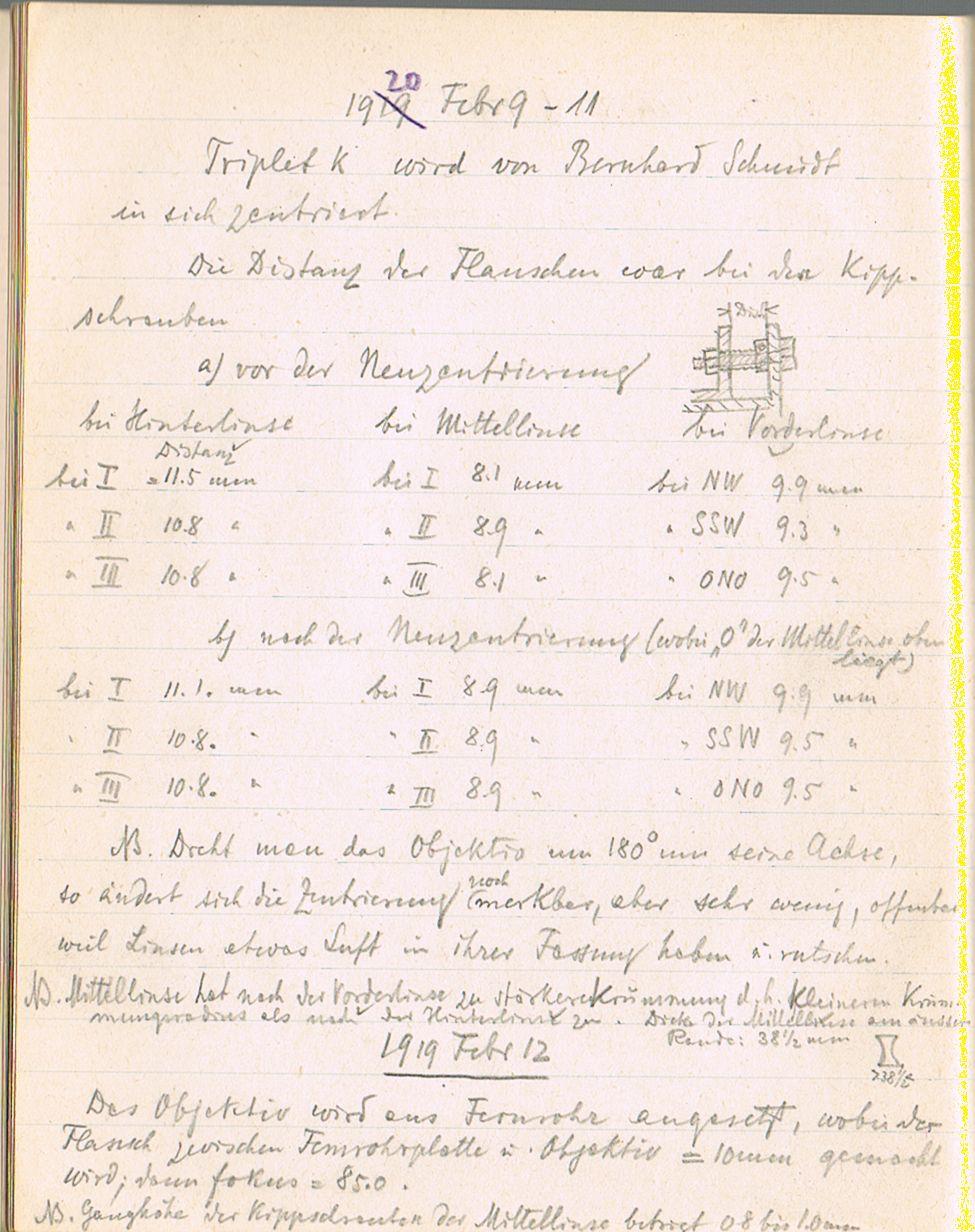 1919 20 Febr 9 - 11
Triplet K wird von Bernhard Schmidt
in sich zentriert.
Die Distanz der Flanschen war bei den Kipp-
schrauben
Dist
a) vor der Neuzentrierung
bei Hinterlinse bei Mittellinse bei Vorderlinse
Distanz
bei I = 11.5 mm bei I 8.1 mm bei NW 9.9 mm
" II 10.8 " " II 8.9 " " SSW 9.3 "
" III 10.8 " " III 8.1 " " ONO 9.5 "
b) nach der Neuzentrierung (wobei „0" der Mittellinse oben
liegt)
bei I 11.1. mm bei I 8.9 mm bei NW 9.9 mm
" II 10.8. " " II 8.9 " " SSW 9.5 "
" III 10.8. " " III 8.9 " " ONO 9.5 "
NB. Dreht man das Objektiv um 180° um seine Achse,
so ändert sich die Zentrierung noch merkbar, aber sehr wenig, offenbar
weil Linsen etwas Luft in ihrer Fassung haben u. rutschen.
NB. Mittellinse hat nach der Vorderlinse zu stärkere Krümmung d.h. kleineren Krüm-
mungsradius als nach der Hinterlinse zu. Dicke der Mittellinse am äusser
Rande: 38 1/2 mm
38 1/2
1919 Febr 12
Das Objektiv wird ans Fernrohr angesetzt, wobei der
Flansch zwischen Fernrohrplatte u. Objektiv = 10mm gemacht
wird; dann fokus = 85.0.
NB. Ganghöhe der Kippschrauben der Mittellinse beträgt 0.8 bis 1.0 mm